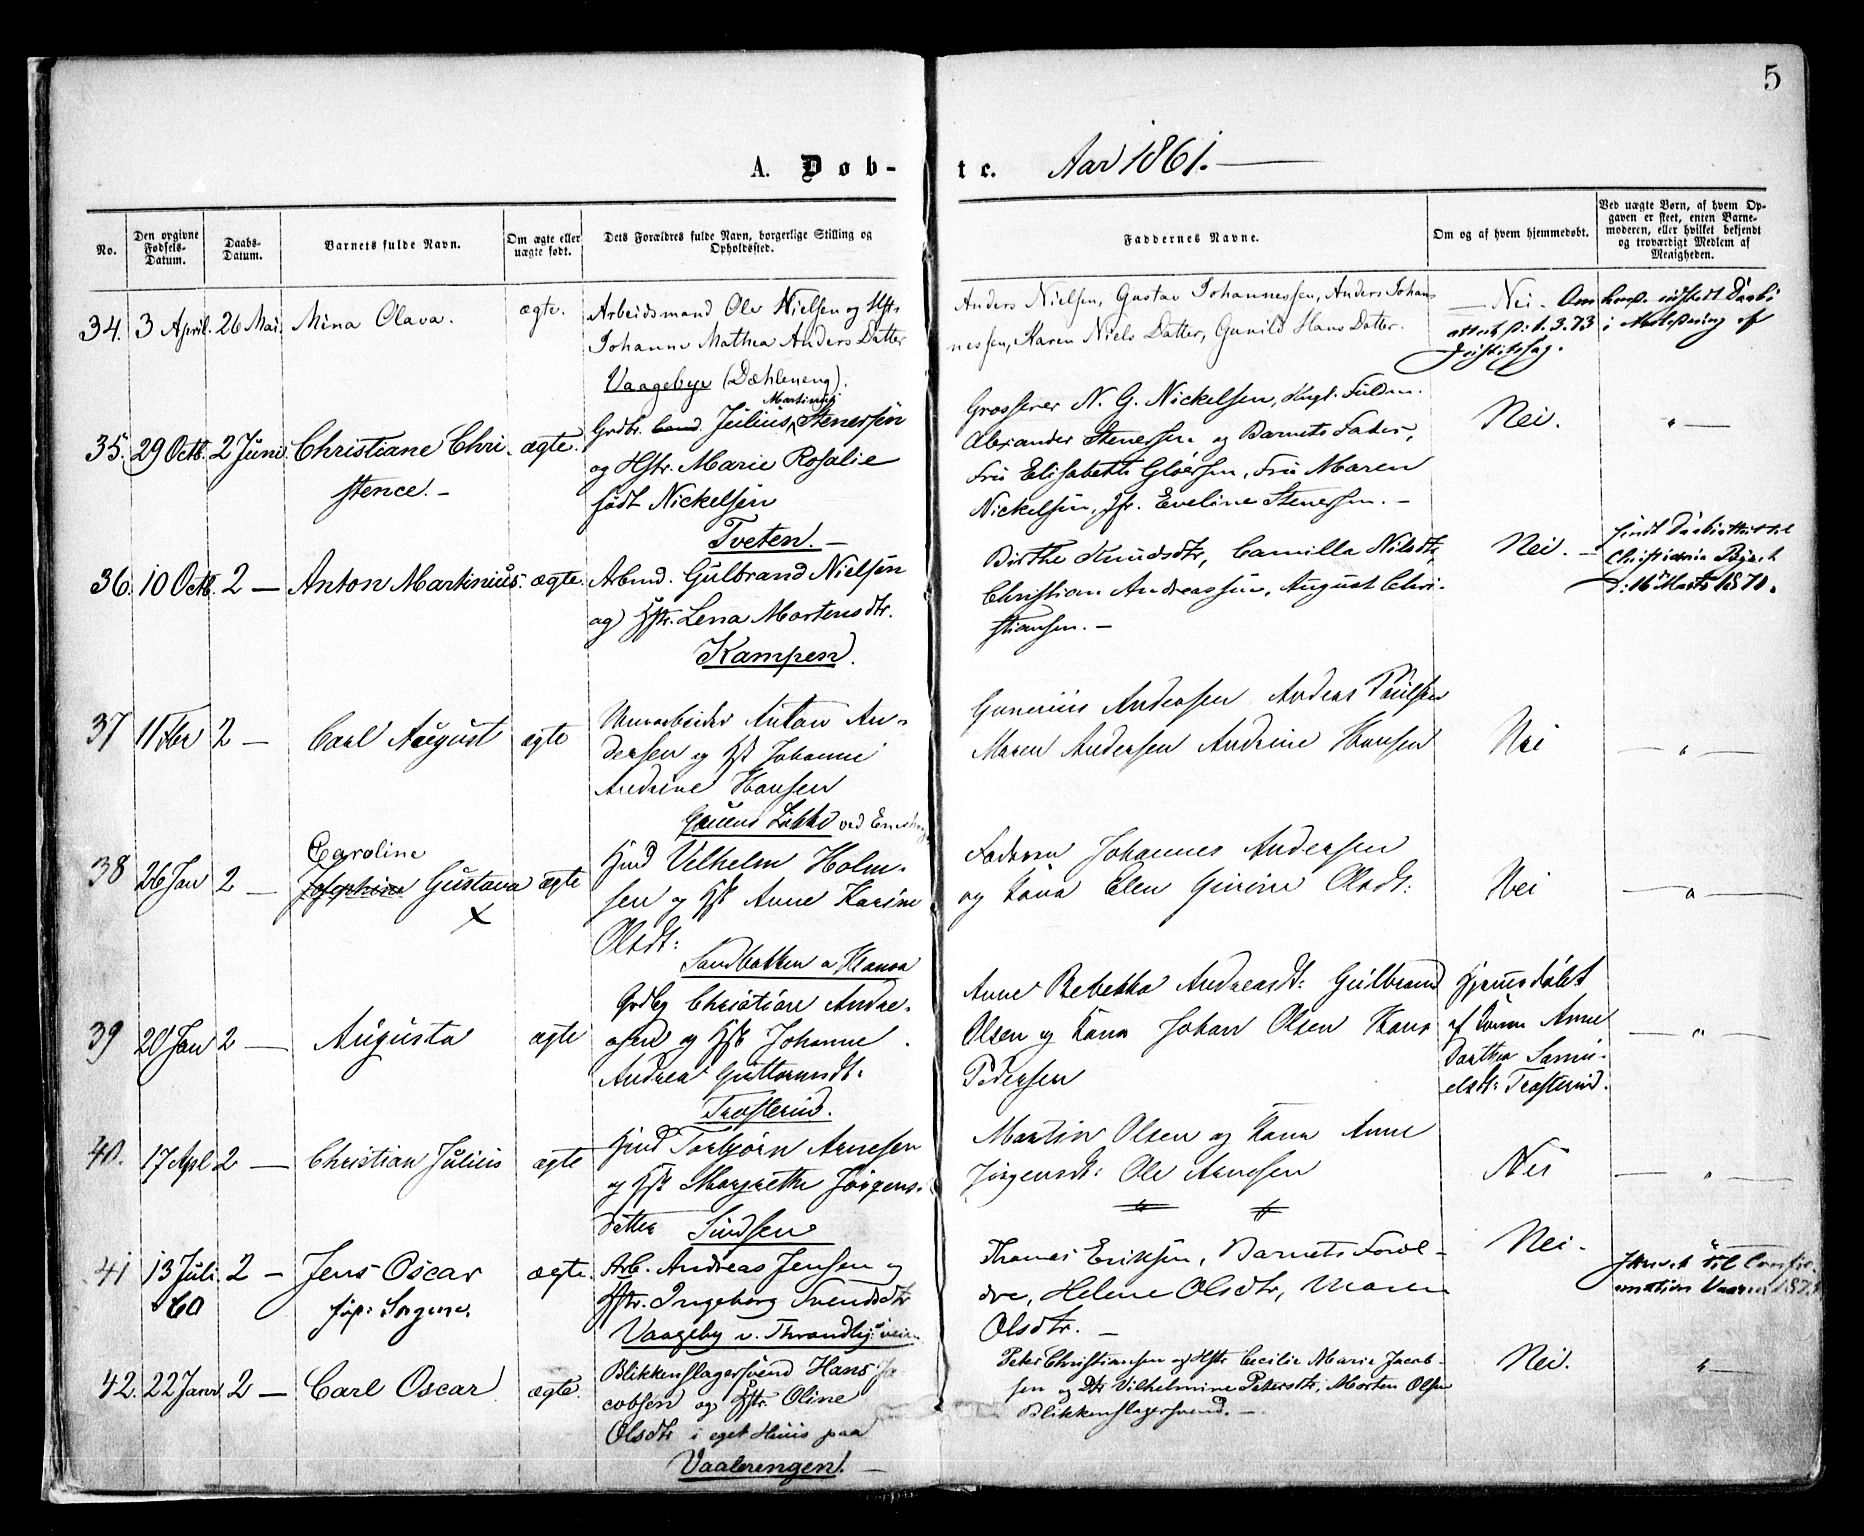 5
A. Døb-te. Aar 1861.
No.
Den opgivne Fødsels-Datum.
Daabs-Datum.
Barnets fulde Navn.
Om ægte eller uægte født.
Dets Forældres fulde Navn, borgerlige Stilling og Opholdssted.
Faddernes Navne.
Om og af hvem hjemmedøbt.
Ved uægte Børn, af hvem Opgaven er skeet, enten Barnemoderen, eller hvilket bekjendt og troværdigt Medlem af Menigheden.
34. 3 April. 26 Mai. Mina Olava. ægte.
Arbeidsmand Ole Nielsen og Hstr
Johanne Mathea Anders Datter
Vaagebye (Dæhleneng).
Anders Nielsen, Gustav Johannessen, Anders Johan-
nessen, Karen Niels Datter, Gunild Hans Datter.
— Nei.
35. 29 Octb. 2 Juni. Christiane Chri-
stence. — ægte.
Martinus
Grdbr. Julius Stenersen
og Hstr. Marie Rosalie
født Nickelsen
Tveten. —
Grosserer N. G. Nickelsen, Kngl. Fuldm.
Alexander Stenersen og Barnets Fader,
Fru Elisabeth Gløersen, Fru Maren
Nickelsen, Jfr. Eveline Stenersen. —
Nei. " —
36. 10 Octb. 2 — Anton Martinius. ægte.
Arbmd. Gulbrand Nielsen
og Hstr. Lena Mortensdtr.
Kampen.
Birthe Knudsdtr, Camilla Nilsdtr,
Christian Andreassen, August Chri-
stiansen. —
Nei. —
Christiania
D: 16 Marts 1870.
37 11 Fbr 2 — Carl August ægte
Murarbeider Anton An-
dersen og Hst Johanne
Andrine Hansen
Grüners Løkke ved
Gunerius Andersen Anders Paulsen
Maren Andersen Andrine Hansen
Nei — " —
38 26 Jan 2 — Caroline
Josephine Gustava ægte
x
Hmd Vilhelm Holm-
sen og Hst Anne Karine
Olsdt:
Sandbakken
Faderen Johannes Andersen
og Kona Elen Gurine Olsdt:
Nei — " —
39 20 Jan 2 — Augusta ægte
Grdbr Christian Andre-
asen og Hst Johanne
Andrea Guttormsdt:
Trosterud.
Anne Rebekka Andreasdt: Gulbrand
Olsen og Kona Johan Olsen Hans
Pedersen
Hjemmedøbt
af Anne
Dorthea Samu-
elsdt: Trosterud.
— " —
40. 17 Apl 2 — Christian Julius ægte
Hmd Torbjørn Arnesen
og Hst Margrethe Jørgens-
datter Sindsen
Martin Olsen og Kona Anne
Jørgensdt: Ole Arnesen
Nei — " —
41 13 Juli 2 — Jens Oscar ægte.
60
Arb. Andreas Jensen og
Hstr. Ingeborg Svendsdtr
Vaageby v. Throndhj. veien
Thomas Eriksen, Barnets Foræl-
dre, Helene Olsdtr, Maren
Olsdtr. —
Nei.
til Confir-
mation Vaaren
42. 22 Janr. 2 — Carl Oscar ægte.
Blikkenslagersvend Hans Ja-
cobsen og Hstr. Oline
Olsdtr i eget Huus paa
Vaalerengen. —
Peter Christiansen og Hstr Cecilie Marie Jacob-
sen og Dtr Vilhelmine Petersdtr, Morten Olsen
Blikkenslagersvend. —
Nei. " —